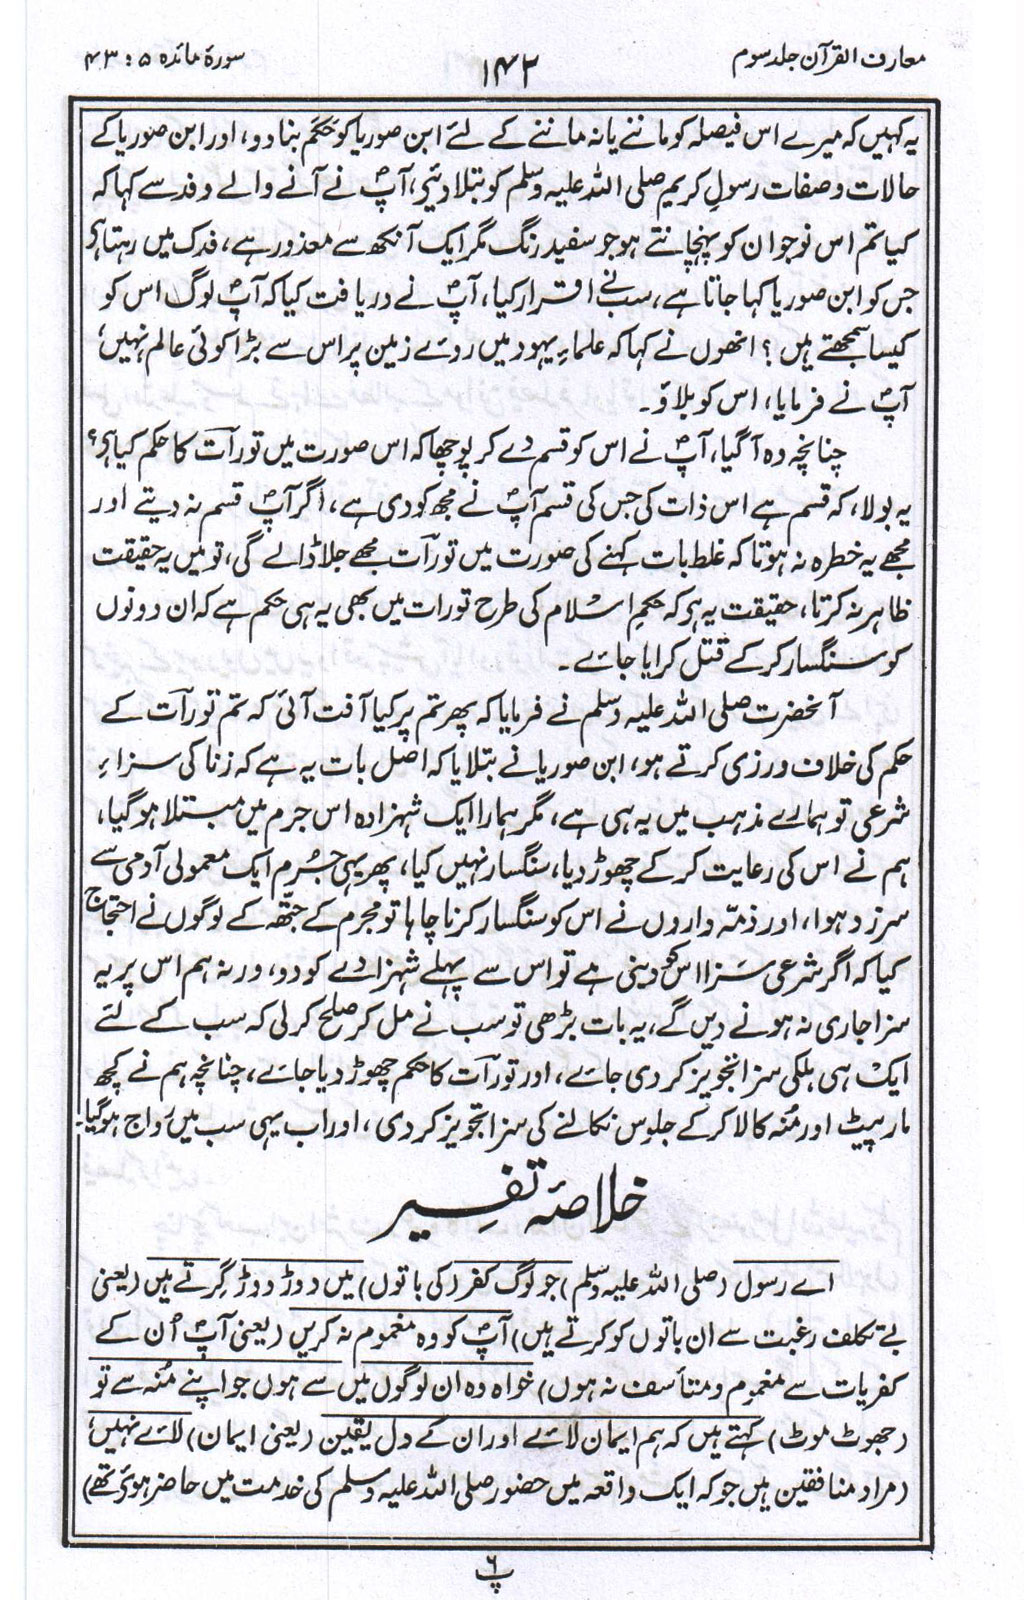 معارف القرآن جلد سوم
۱۴۲
سورۂ مائدہ ۵ : ۴۳
یہ کہیں کہ میرے اس فیصلہ کو ماننے یا نہ ماننے کے لئے ابن صوریا کو حَکَم بنا دو، اور ابن صوریا کے
حالات و صفات رسول کریم صلی اللہ علیہ وسلم کو بتلا دئیے، آپؐ نے آنے والے وفد سے کہا کہ
کیا تم اس نوجوان کو پہچانتے ہو جو سفید رنگ مگر ایک آنکھ سے معذور ہے، فدک میں رہتا ہی
جس کو ابن صوریا کہا جاتا ہے، سب نے اقرار کیا، آپؐ نے دریافت کیا کہ آپؐ لوگ اس کو
کیسا سمجھتے ہیں؟ انھوں نے کہا کہ علماءِ یہود میں روے زمین پر اس سے بڑا کوئی عالم نہیں،
آپؐ نے فرمایا، اس کو بلاؤ۔
چنانچہ وہ آگیا، آپؐ نے اس کو قسم دے کر پوچھا کہ اس صورت میں تورآت کا حکم کیا ہی؟
یہ بولا، کہ قسم ہے اس ذات کی جس کی قسم آپؐ نے مجھ کو دی ہے، اگر آپؐ قسم نہ دیتے اور
مجھے یہ خطرہ نہ ہوتا کہ غلط بات کہنے کی صورت میں تورآت مجھے جلا ڈالے گی، تو میں یہ حقیقت
ظاہر نہ کرتا، حقیقت یہ ہی کہ حکمِ اسلام کی طرح تورات میں بھی یہ ہی حکم ہے کہ ان دونوں
کو سنگسار کر کے قتل کرایا جاے۔
آنحضرت صلی اللہ علیہ وسلم نے فرمایا کہ پھر تم پر کیا آفت آئی کہ تم تورآت کے
حکم کی خلاف ورزی کرتے ہو، ابن صوریا نے بتلایا کہ اصل بات یہ ہے کہ زنا کی سزاءِ
شرعی تو ہمارے مذہب میں یہ ہی ہے، مگر ہمارا ایک شہزادہ اس جرم میں مبتلا ہوگیا،
ہم نے اس کی رعایت کر کے چھوڑ دیا، سنگسار نہیں کیا، پھر یہی جُرم ایک معمولی آدمی سے
سرزد ہوا، اور ذمّہ داروں نے اس کو سنگسار کرنا چاہا تو مجرم کے جتّھہ کے لوگوں نے احتجاج
کیا کہ اگر شرعی سزا اس کو دینی ہے تو اس سے پہلے شہزادے کو دو، ورنہ ہم اس پر یہ
سزا جاری نہ ہونے دیں گے، یہ بات بڑھی تو سب نے مل کر صلح کر لی کہ سب کے لئے
ایک ہی ہلکی سزا تجویز کر دی جاے، اور تورآت کا حکم چھوڑ دیا جاے، چنانچہ ہم نے کچھ
مار پیٹ اور مُنہ کالا کر کے جلوس نکالنے کی سزا تجویز کر دی، اور اب یہی سب میں رواج ہوگیا۔
خلاصۂ تفسیر
اے رسول (صلی اللہ علیہ وسلم) جو لوگ کفر (کی باتوں) میں دوڑ دوڑ گرتے ہیں (یعنی
بے تکلف رغبت سے ان باتوں کو کرتے ہیں) آپؐ کو وہ مغموم نہ کریں (یعنی آپؐ اُن کے
کفریات سے مغموم و متأسف نہ ہوں) خواہ وہ ان لوگوں میں سے ہوں جو اپنے مُنہ سے تو
(جھوٹ موٹ) کہتے ہیں کہ ہم ایمان لاے اور ان کے دل یقین (یعنی ایمان) لاے نہیں،
(مراد منافقین ہیں جو کہ ایک واقعہ میں حضور صلی اللہ علیہ وسلم کی خدمت میں حاضر ہوئے تھے)
۶
پ